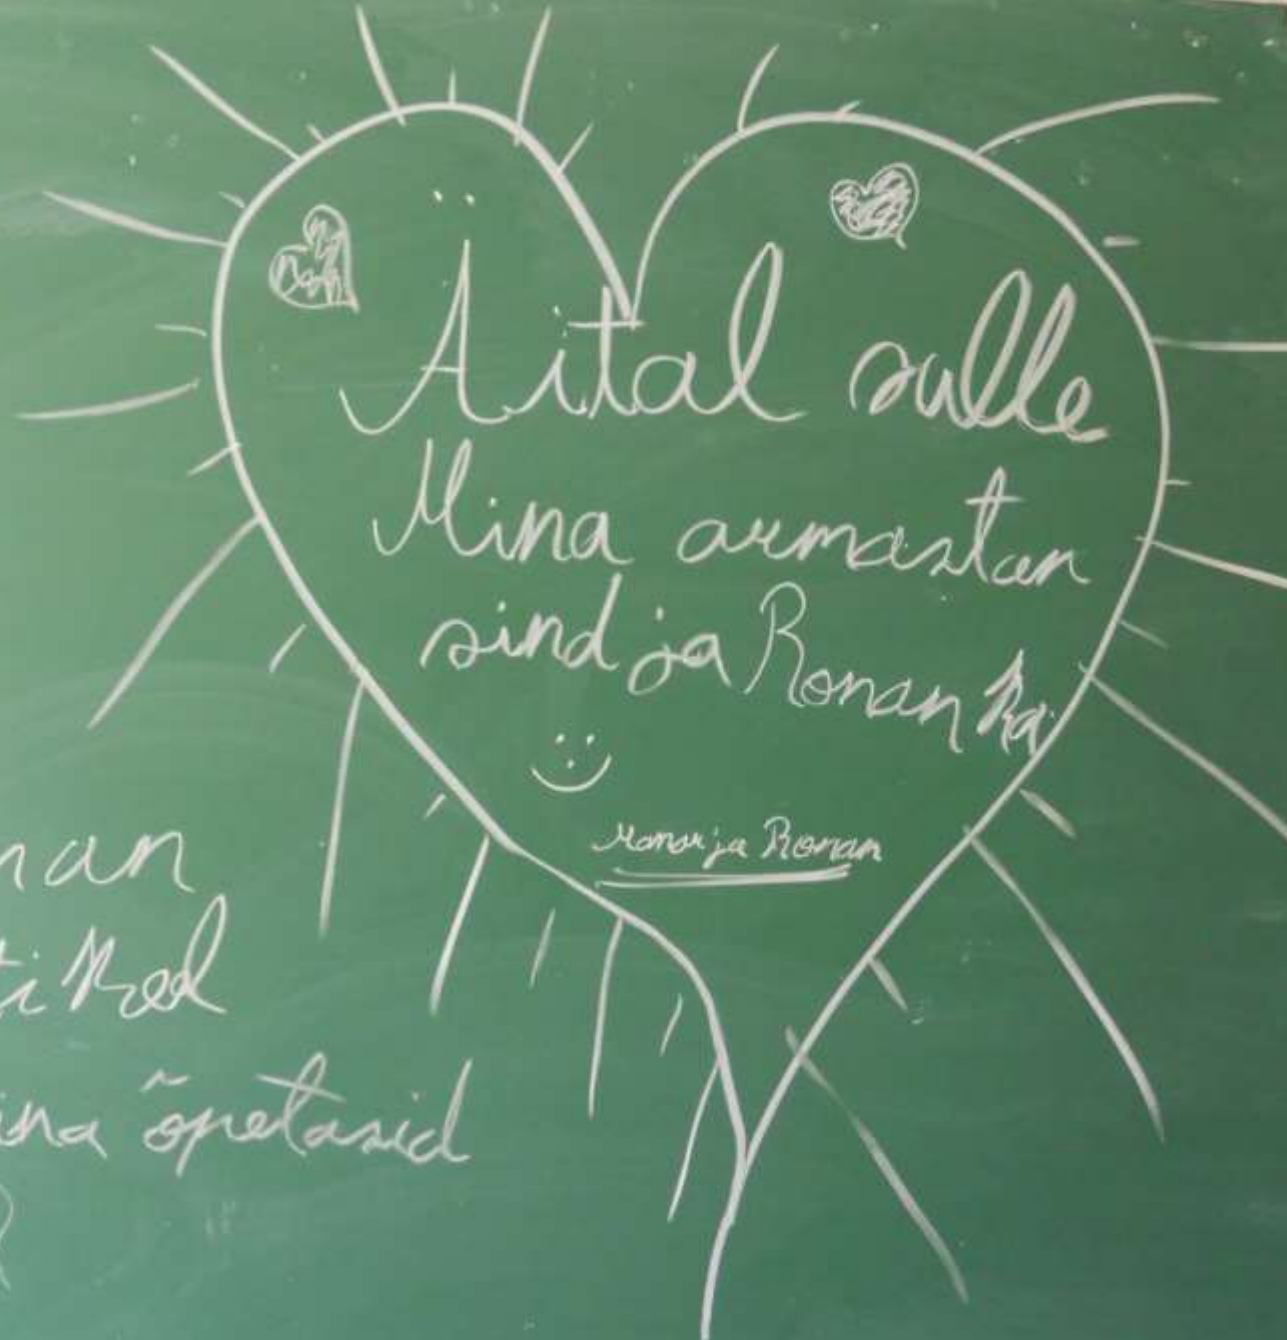 Äital sulle
Mina armastan
sind ja Roman ka
ja Roman
nan
ked
ina õpetasid